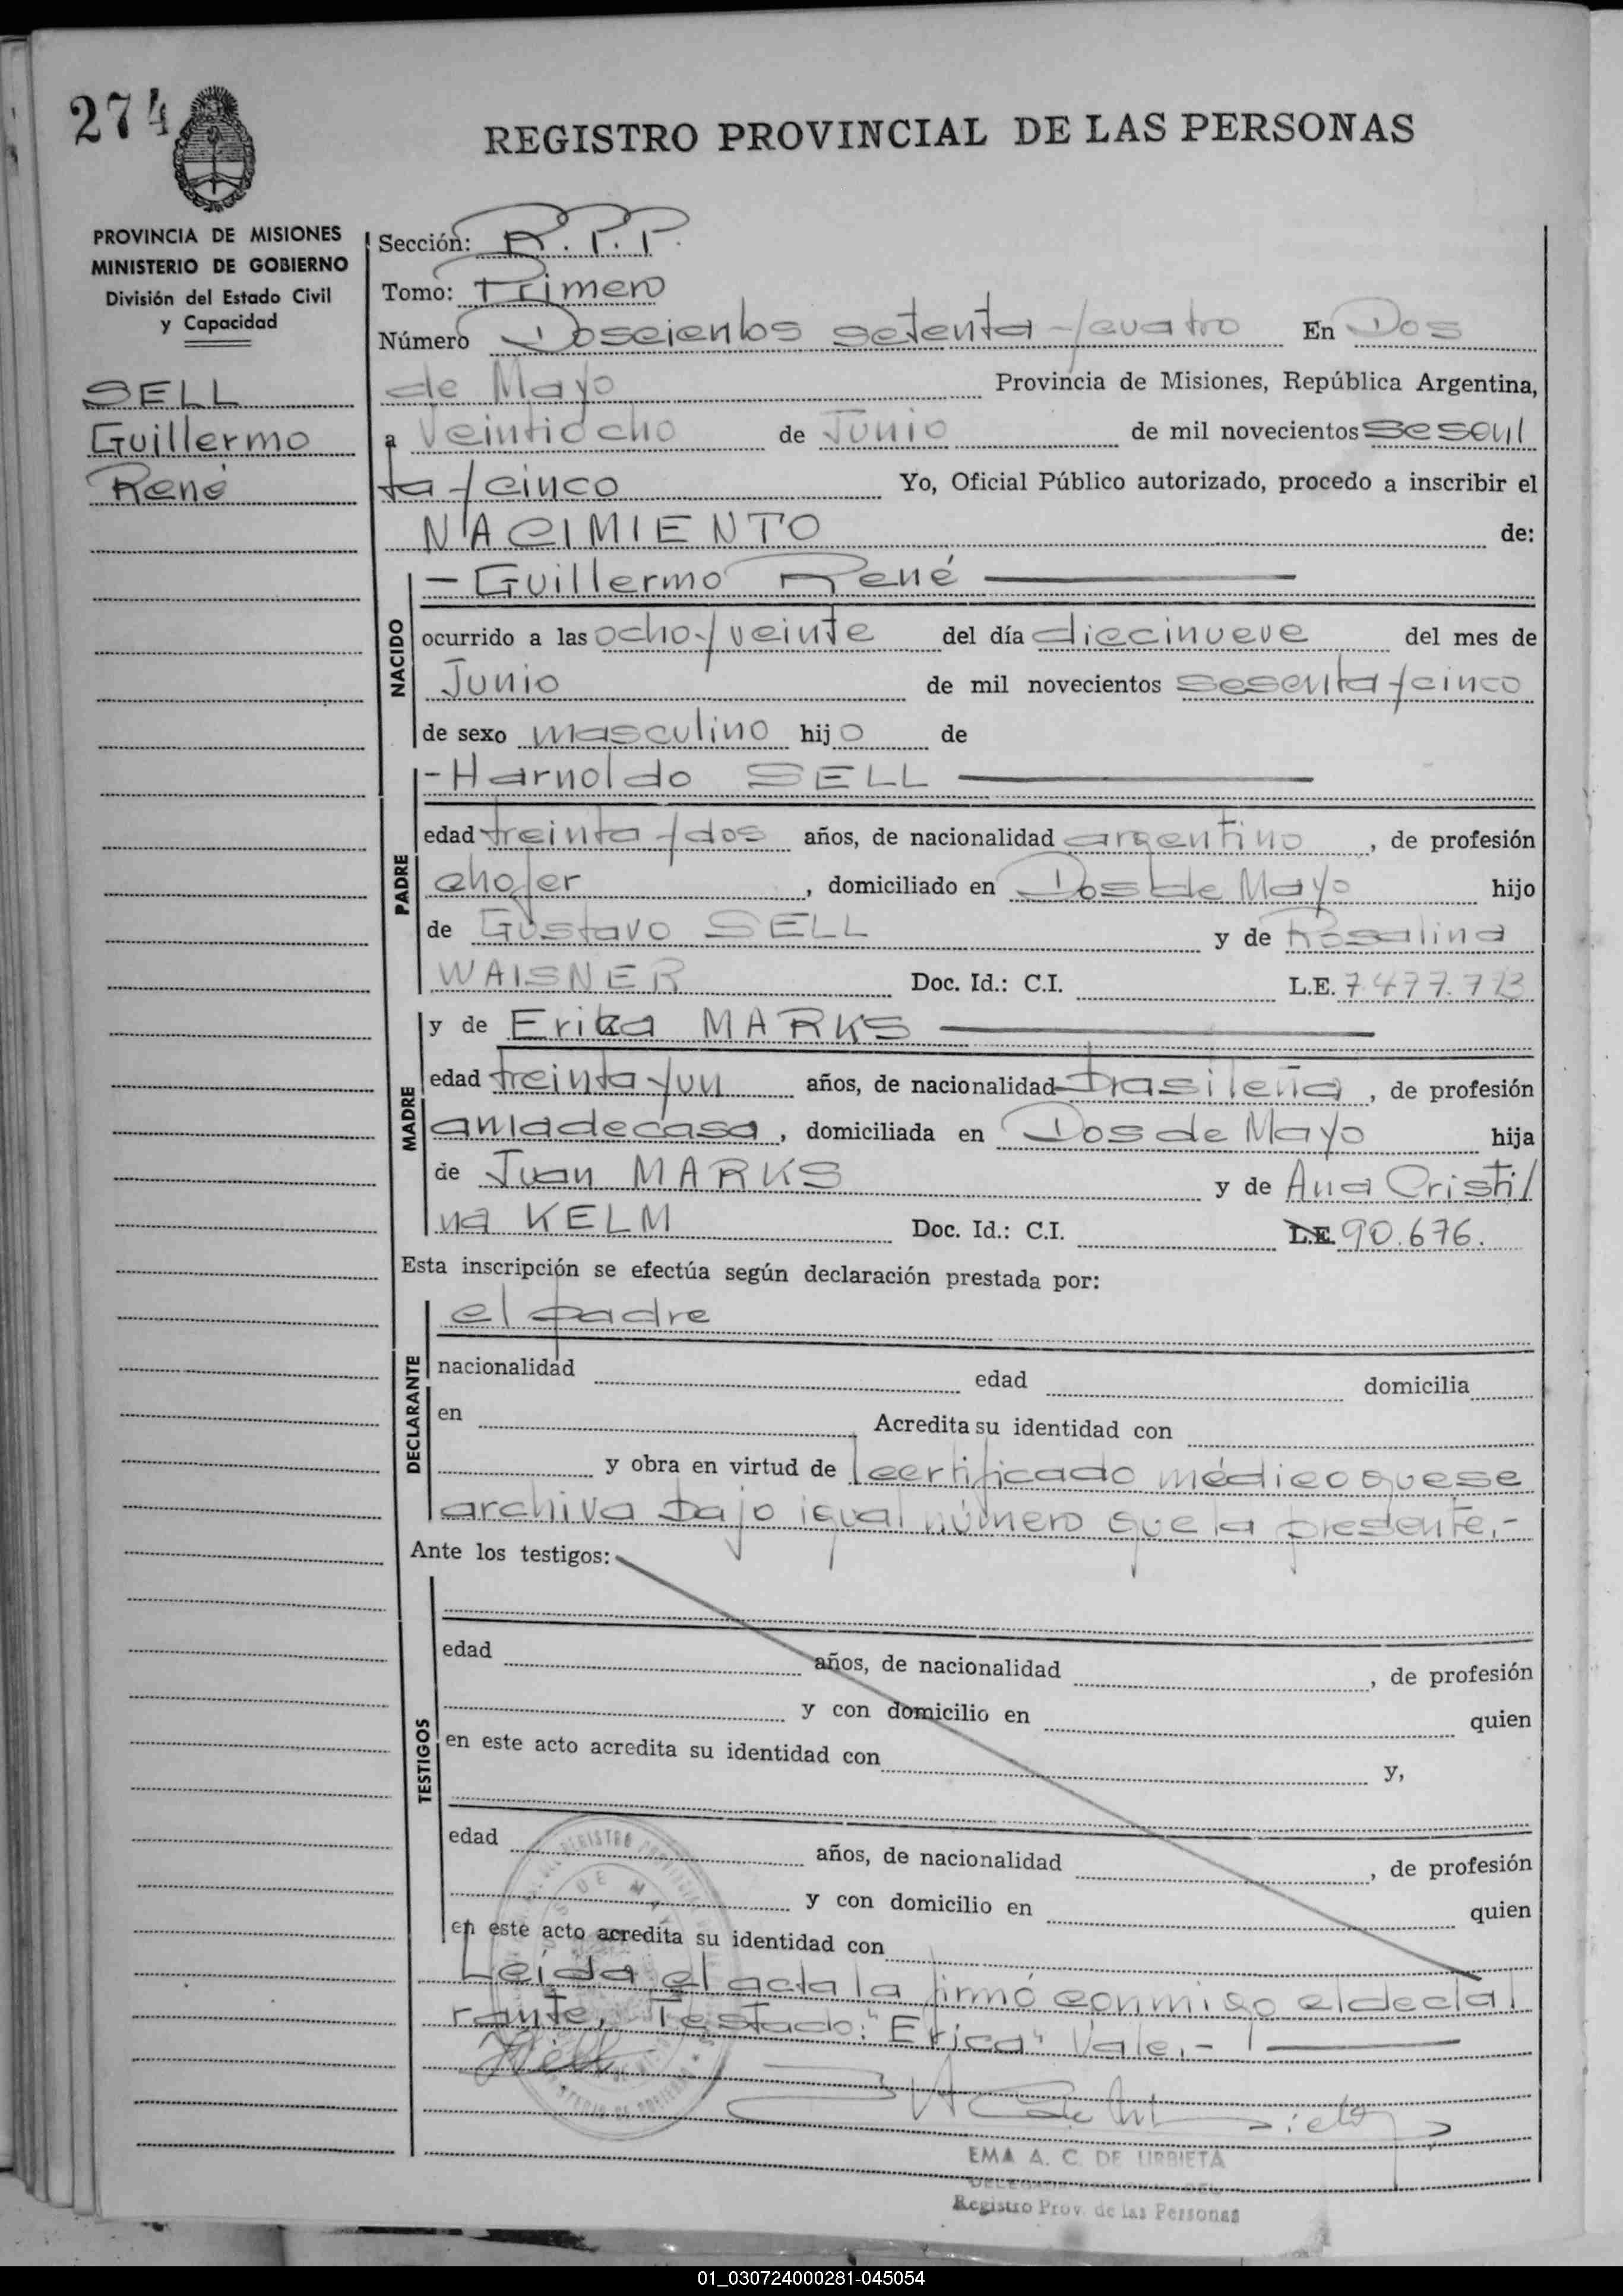 274
REGISTRO PROVINCIAL DE LAS PERSONAS
PROVINCIA DE MISIONES
MINISTERIO DE GOBIERNO
División del Estado Civil
y Capacidad
SELL
Guillermo
René
Sección: R.P.P.
Tomo: Primero
Número Doscientos setenta y cuatro En Dos
de Mayo Provincia de Misiones, República Argentina,
a Veintiocho de Junio de mil novecientos sesen/
ta y cinco Yo, Oficial Público autorizado, procedo a inscribir el
NACIMIENTO de:
NACIDO
- Guillermo René
ocurrido a las ocho y veinte del día diecinueve del mes de
Junio de mil novecientos sesenta y cinco
de sexo masculino hijo de
PADRE
- Harnoldo SELL
edad treinta y dos años, de nacionalidad argentino, de profesión
chofer, domiciliado en Dos de Mayo hijo
de Gustavo SELL y de Rosalina
WAISNER Doc. Id.: C.I. L.E. 7.477.713
MADRE
y de Erika MARKS
edad treinta y un años, de nacionalidad brasileña, de profesión
ama de casa, domiciliada en Dos de Mayo hija
de Juan MARKS y de Ana Cristi/
na KELM Doc. Id.: C.I. L.E. 90.676.
Esta inscripción se efectúa según declaración prestada por:
DECLARANTE
el padre
nacionalidad edad domicilia
en Acredita su identidad con
y obra en virtud de l certificado médico que se
archiva bajo igual número que la presente.-
Ante los testigos:
TESTIGOS
edad años, de nacionalidad , de profesión
y con domicilio en quien
en este acto acredita su identidad con y,
edad años, de nacionalidad , de profesión
y con domicilio en quien
en este acto acredita su identidad con
Leída el acta la firmó conmigo el decla/
rante, Testado: "Erica" Vale.-
EMA A. C. DE URBIETA
Registro Prov. de las Personas
01_030724000281-045054